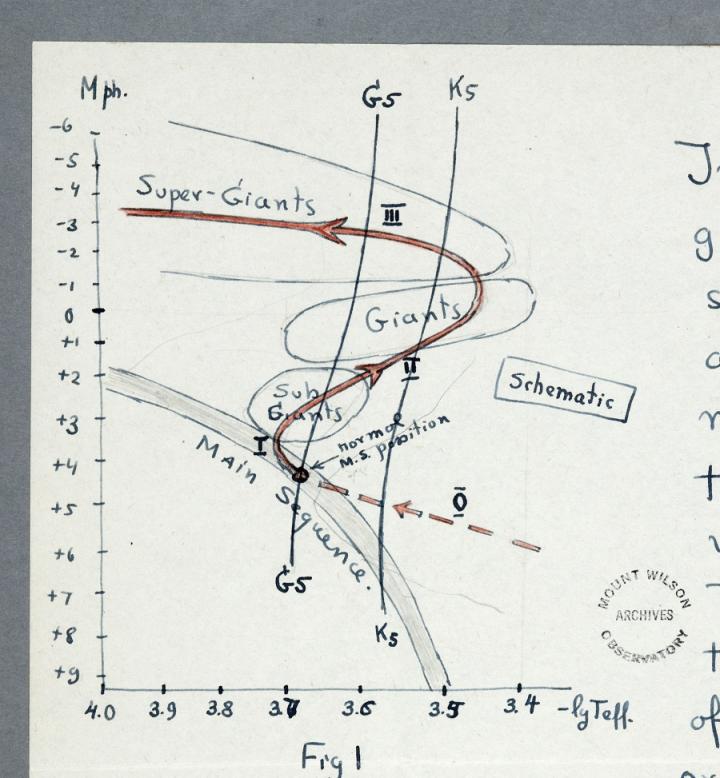 Mph.
G5
K5
-6
-5
-4
-3
-2
-1
0
+1
+2
+3
+4
+5
+6
+7
+8
+9
Super-Giants
III
Giants
II
Sub
Giants
Schematic
I
normal
M.S. position
Main Sequence.
0
G5
K5
MOUNT WILSON
ARCHIVES
OBSERVATORY
4.0 3.9 3.8 3.7 3.6 3.5 3.4 -lgTeff.
Fig 1
g
of